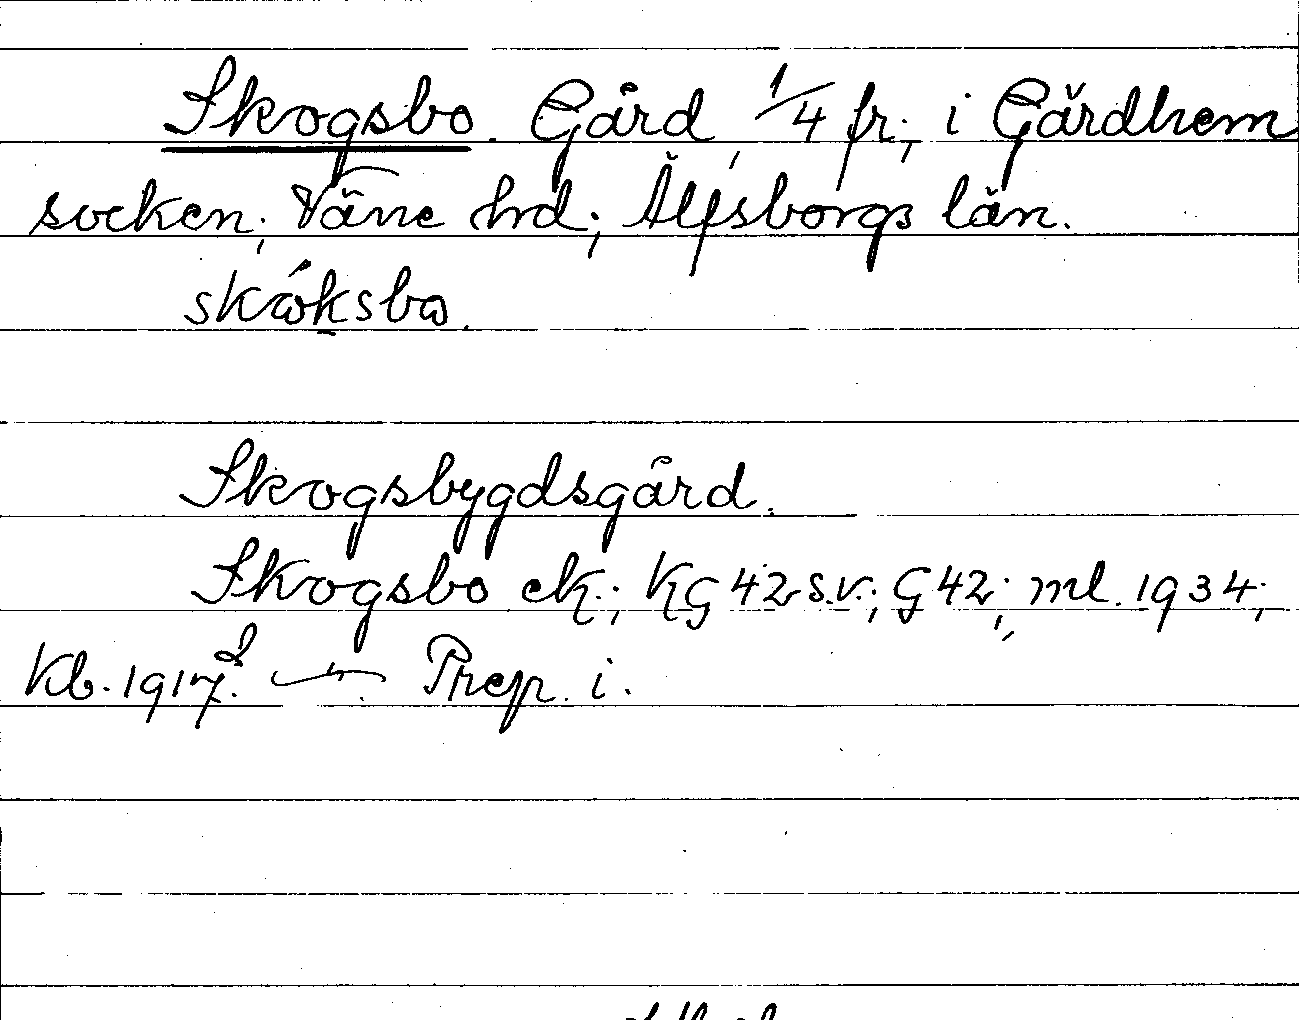 Skogsbo. Gård, 1/4 fr; i Gärdhem
socken; Väne hd; Älfsborgs län.
skóksbo.
Skogsbygdsgård.
Skogsbo ek.; KG 42 s.v.; G 42; ml. 1934;
Kb. 1917. Prep. i.